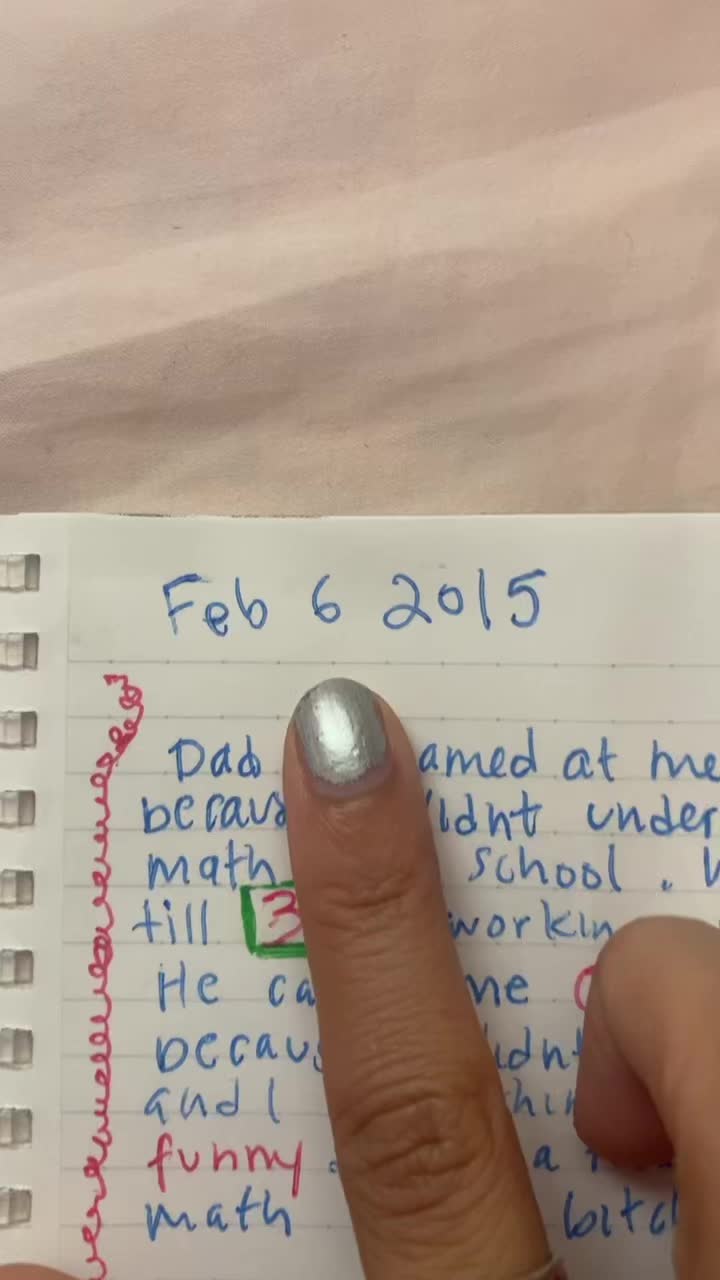 Feb 6 2015
Dad amed at me
becaus ldnt under
math school.
till 3 workin
He ca me
becaus idnt
and I hin
funny. a
math bitc